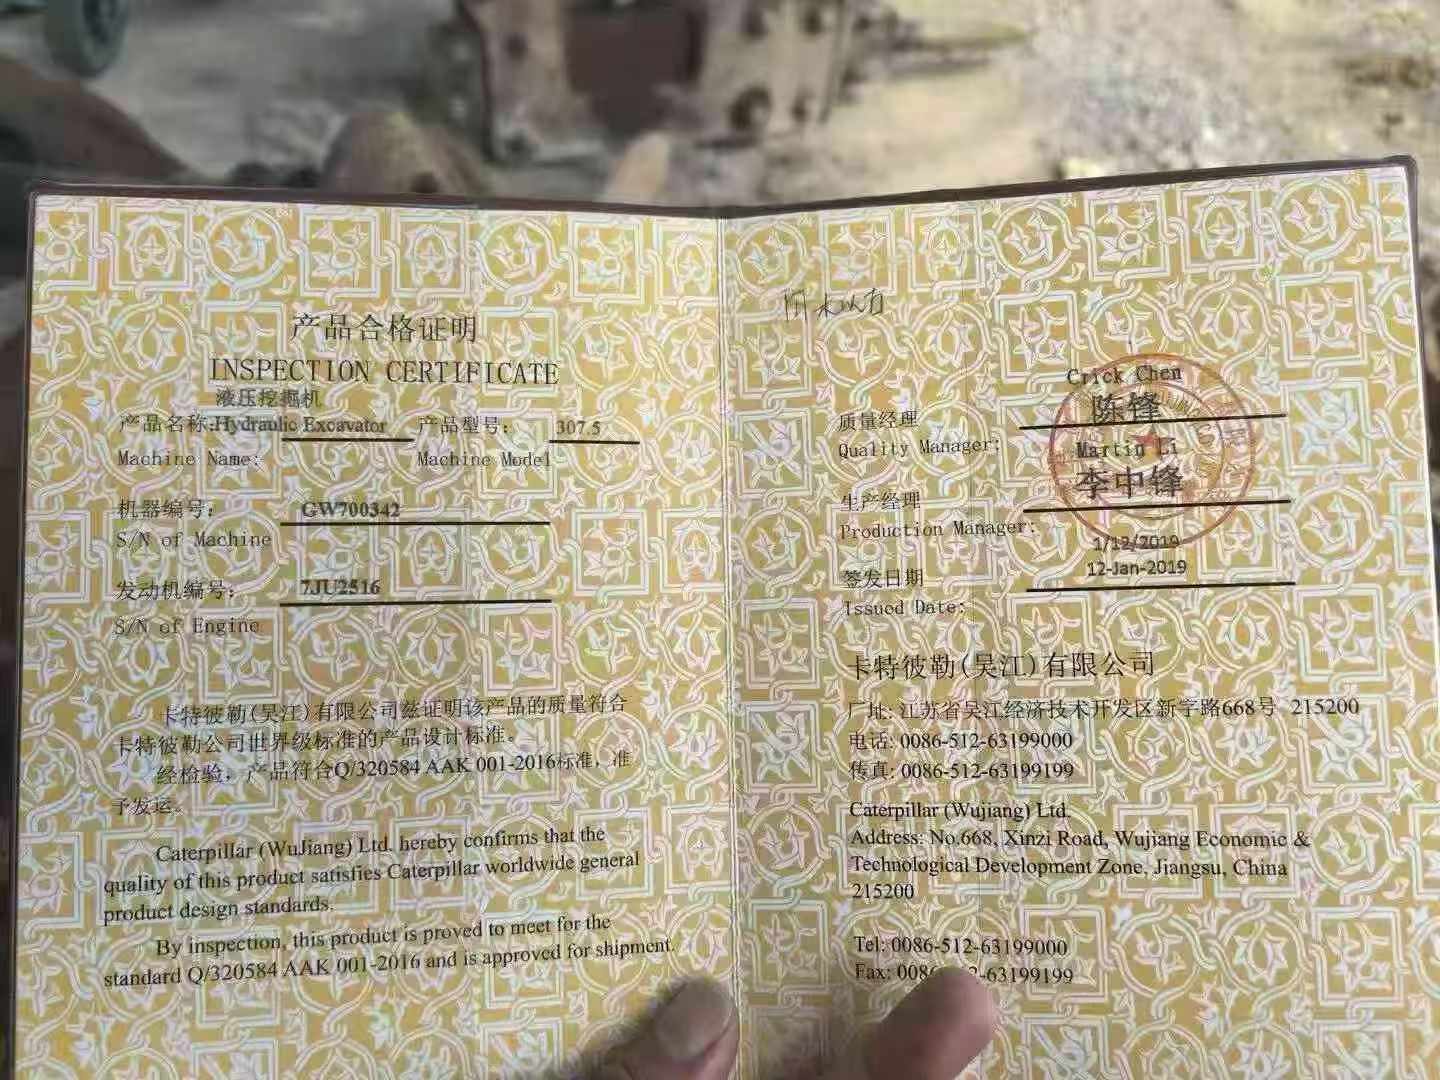 产品合格证明
INSPECTION CERTIFICATE
液压挖掘机
产品名称:Hydraulic Excavator 产品型号: 307.5
Machine Name: Machine Model
机器编号: GW700342
S/N of Machine
发动机编号: 7JU2516
S/N of Engine
卡特彼勒(吴江)有限公司兹证明该产品的质量符合
卡特彼勒公司世界级标准的产品设计标准。
经检验,产品符合Q/320584 AAK 001-2016标准,准
予发运。
Caterpillar (WuJiang) Ltd. hereby confirms that the
quality of this product satisfies Caterpillar worldwide general
product design standards.
By inspection, this product is proved to meet for the
standard Q/320584 AAK 001-2016 and is approved for shipment.
Crick Chen
质量经理 陈锋
Quality Manager:
Martin Li
生产经理 李中锋
Production Manager:
1/12/2019
签发日期 12-Jan-2019
Issued Date:
卡特彼勒(吴江)有限公司
厂址: 江苏省吴江经济技术开发区新字路668号 215200
电话: 0086-512-63199000
传真: 0086-512-63199199
Caterpillar (Wujiang) Ltd.
Address: No.668, Xinzi Road, Wujiang Economic &
Technological Development Zone, Jiangsu, China
215200
Tel: 0086-512-63199000
Fax: 0086-512-63199199